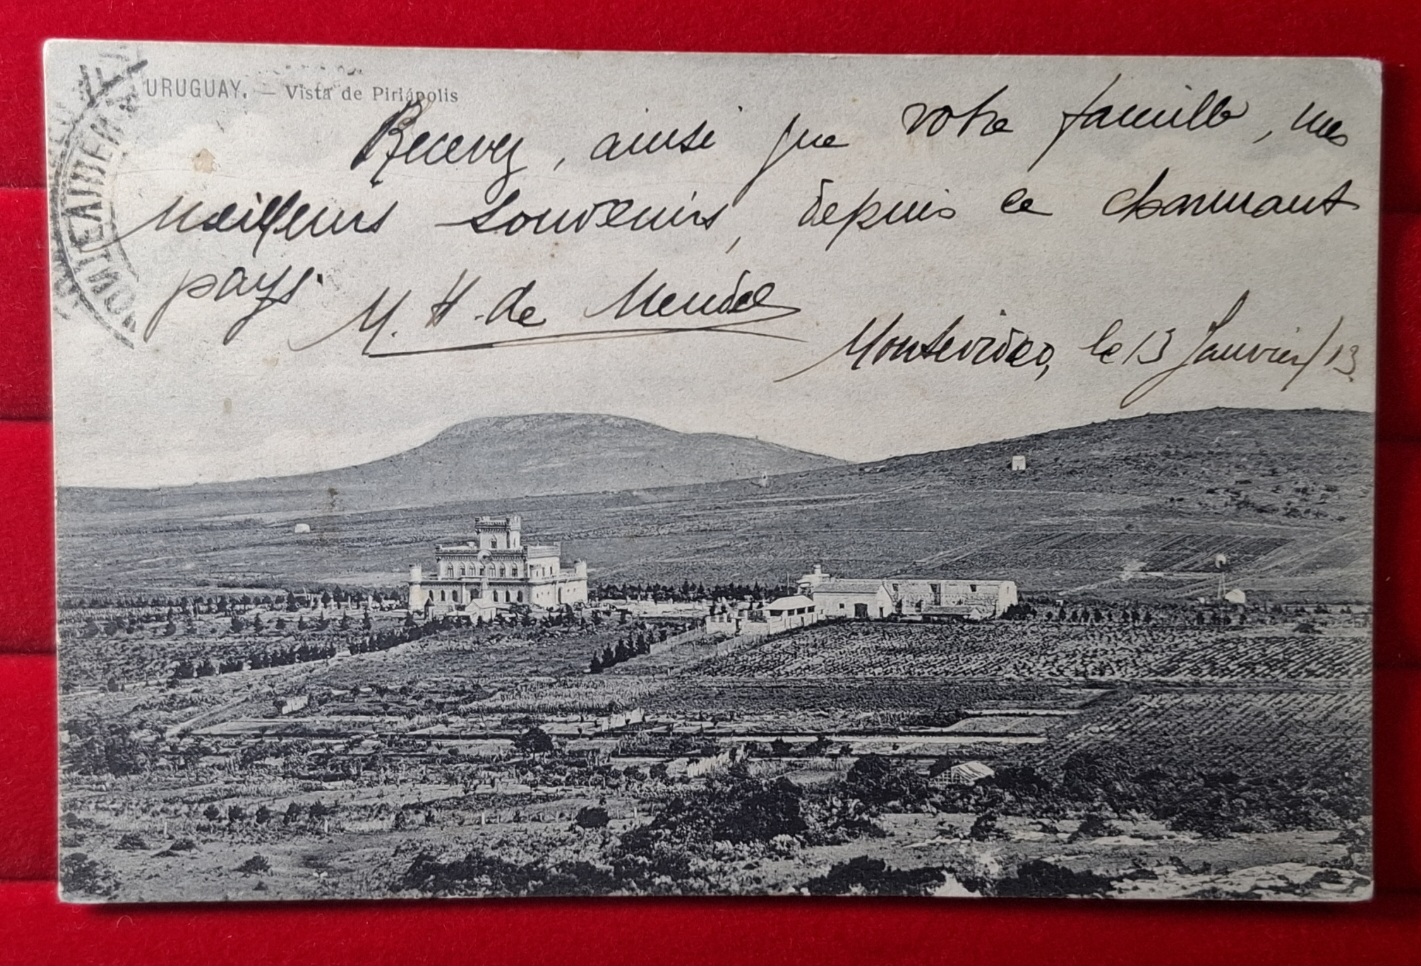 URUGUAY. — Vista de Piriápolis
Recevez, ainsi que votre famille, mes
meilleurs souvenirs, depuis ce charmant
pays.
M. H. de Mendez
Montevideo, le 13 Janvier/13.
MONTEVIDEO